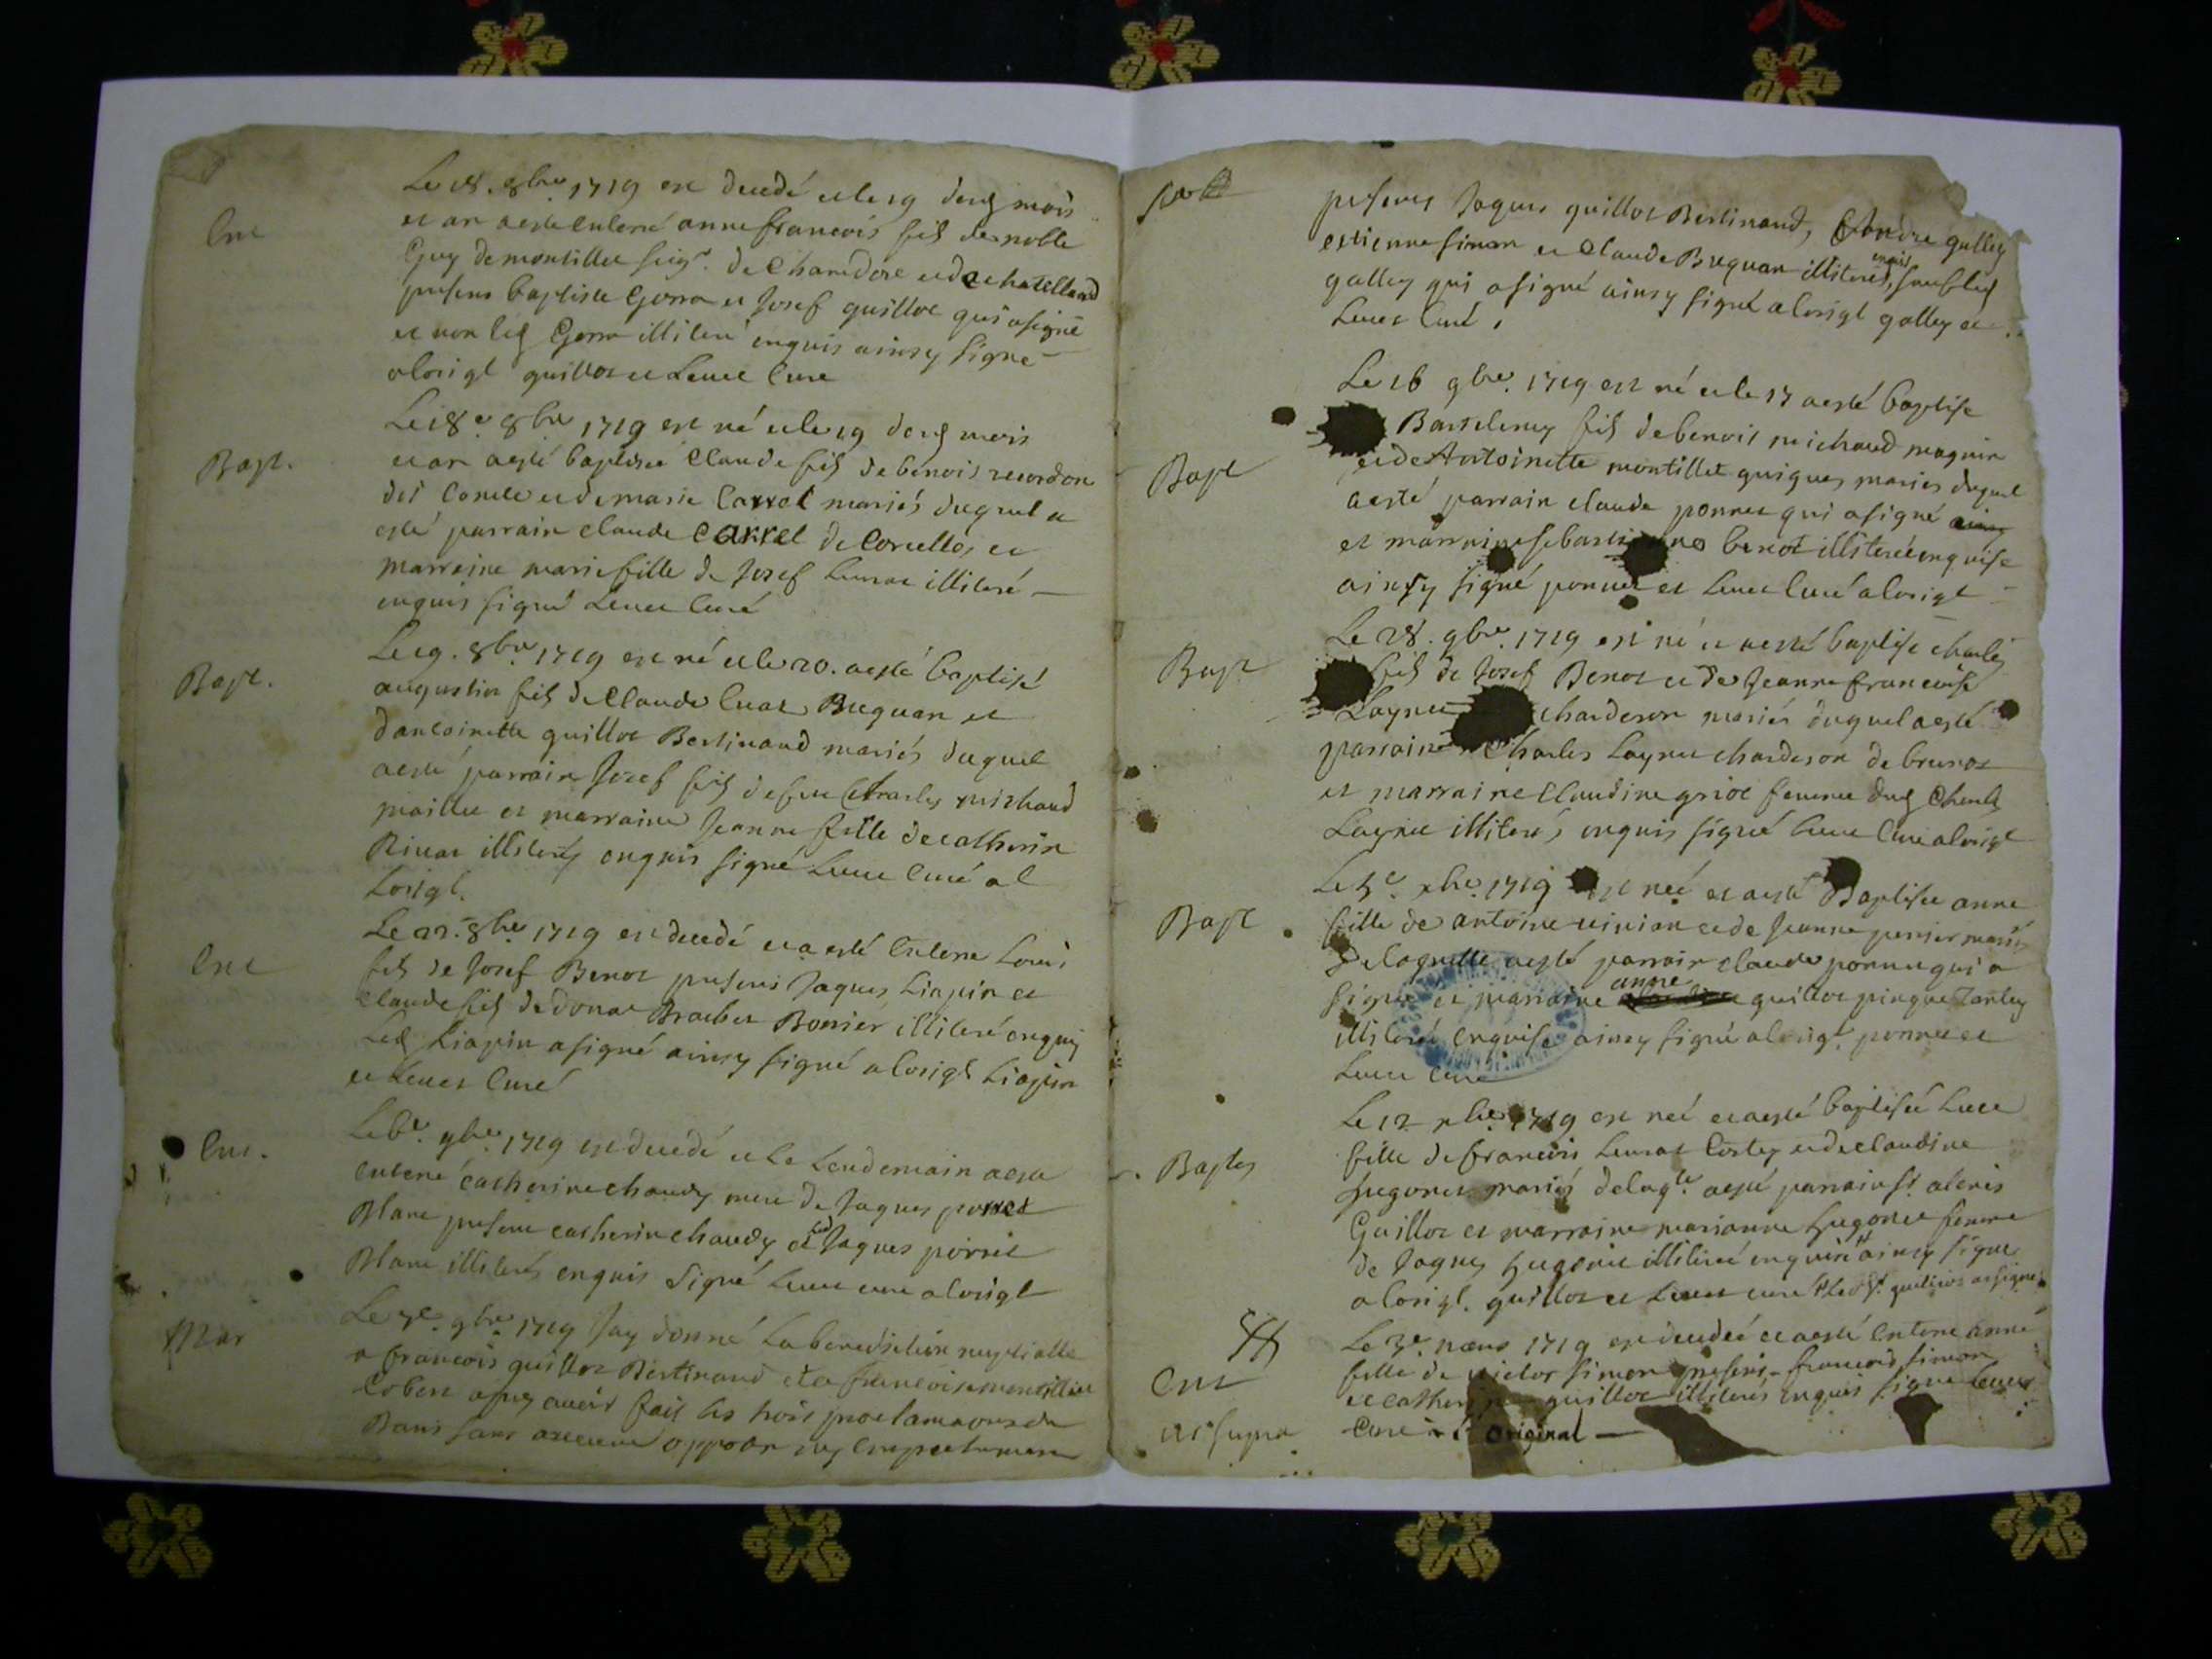 Ent
Le 18. 8bre 1719 est decedé et le 19 desd mois
et an a esté enterré anne francois fils de noble
Guy de montillet seigr. de Chamdore et de chatelland
presens baptiste Gorra et Josef guillot qui a signé
et non led Gorra illiteré enquis ainsy signe
a lorigl guillot et Levet Cure
Bapt.
Le 18e 8bre 1719 est né et le 19 desd mois
et an a esté baptisé Claude fils de benois
et de marie Carrel mariés duquel a
esté parrain Claude Carrel de Corcelles et
marraine marie fille de Josef illiteré
enquis signé Levet Curé
Bapt.
Le 19. 8bre 1719 est né et le 20. a esté baptisé
augustin fils de Claude Buquan et
dantoinette guillot Bertinand mariés duquel
a esté parrain Josef fils de feu Charles michaud
maillet et marraine Jeanne fille de catherin
Binat illiterés enquis signé Levet Curé a l
Lorigl.
Ent
Le 22. 8bre 1719 est decedé et a esté Enterre Louis
fils de Josef Benot presens Jaques Liapin et
Claude fils de donat Brachet Bonnier illiteré enquis
Led Liapin a signé ainsy signé a lorigl Liapin
et Levet Curé
Ent.
Le 6e. 9bre 1719 est decedé et le Lendemain a esté
enterré catherine chaudy mere de Jaques porret
Blanc presens catherin chaudy et led Jaques porret
Blanc illiterés enquis Signé Levet cure a lorigl
Mar
Le 7e. 9bre 1719 Jay donné La benediction nuptialle
a francois guillot Bertinand et a francoise montillet
Cobert apres avoir fait les trois proclamaons de
Bans sans aucune oppoon ny Empechement
presens Jaques guillot Bertinand, andre galley
estienne simon et Claude Buquan illiterés, enquis sauf led
galley qui a signé ainsy signé a lorigl galley et
Levet Curé,
Bapt
Le 16 9bre. 1719 est né et le 17 a esté baptise
Bartelemy fils de benois michaud magnin
et de Antoinette montillet guigues mariés duquel
a esté parrain claude ponnet qui a signé
et marraine benot illiterée enquise
ainsy signé ponnet et Levet Curé a lorigl
Bapt
Le 28. 9bre 1719 est né et a esté baptise charles
fils de Josef Benot et de Jeanne francoise
Laynet chardeson mariés duquel a esté
parrain Charles Laynet chardeson de brenot
et marraine Claudine griot femme dud Charles
Laynet illiterés, enquis signé Levet Cure a lorigl
Bapt
Le 5e. xbre 1719 est neé et a esté Baptisee anne
fille de antoine vivian et de Jeanne mariés
De laquelle a esté parrain claude ponnet qui a
signé et marraine anne guillot pingue
illiterée enquise ainsy signé a lorigl. ponnet et
Levet Cure
Baptes
Le 12 xbre 1719 est neé et a esté baptiseé Luce
fille de francois et de Claudine
hugonet mariés de laqle. a esté parrain sr. alexis
Guillot et marraine marianne hugonet femme
de Jaques hugonet illiterée enquise # ainsy signe
a lorigl. guillot et Levet cure # led sr. guillot a signe
Ent
ut supra
Le 3e. mars 1719 est decedeé et a esté Enterre Anne
fille de victor simon presens francois simon
et catherin guillot illiterés enquis signé Levet
Cure a l'original